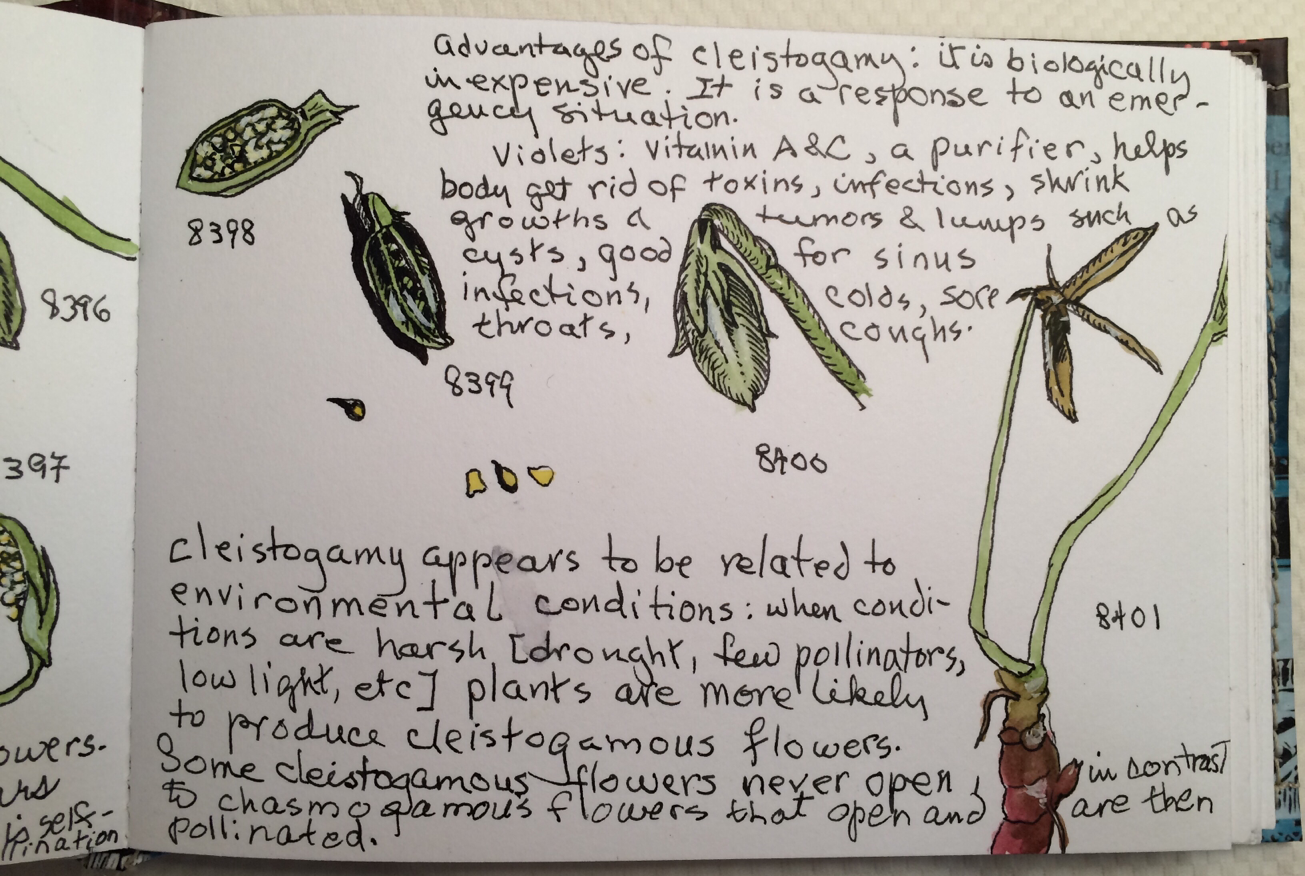 advantages of cleistogamy: it is biologically
inexpensive. It is a response to an emer-
gency situation.
Violets: Vitamin A&C, a purifier, helps
body get rid of toxins, infections, shrink
growths & tumors & lumps such as
cysts, good for sinus
infections, colds, sore
throats, coughs.
8398
8396
8399
8400
397
8401
cleistogamy appears to be related to
environmental conditions: when condi-
tions are harsh [drought, few pollinators,
low light, etc] plants are more likely
to produce cleistogamous flowers.
Some cleistogamous flowers never open, in contrast
to chasmogamous flowers that open and are then
pollinated.
owers.
urs
is self-
llination